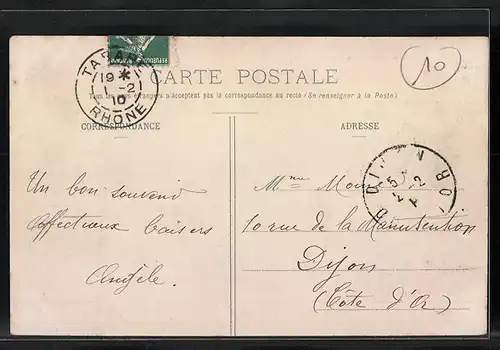 TARARE
19 *
1 -2
10
RHONE
10
CARTE POSTALE
Tous les pays étrangers n'acceptent pas la correspondance au recto (Se renseigner à la Poste)
CORRESPONDANCE
ADRESSE
Un bon souvenir
Affectueux baisers
Angèle.
Mme
10 rue de la Manutention
Dijon
(Côte d'Or)
DIJON